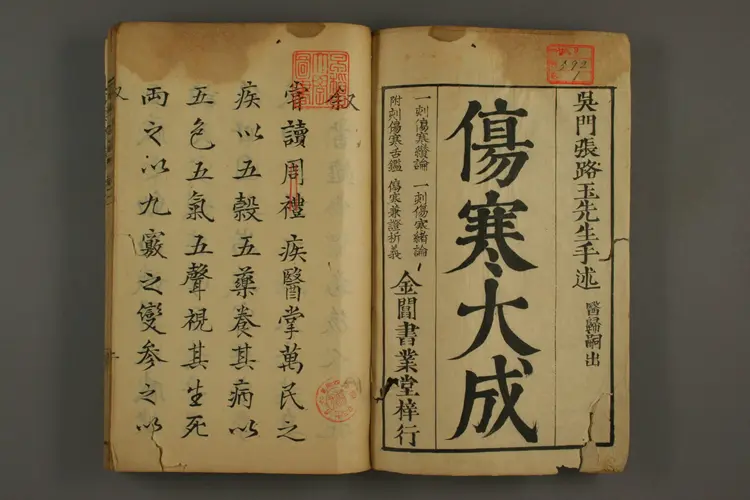 吳門張路玉先生手述
醫歸嗣出
傷寒大成
一刻傷寒纘論
一刻傷寒緒論
附刻傷寒舌鑑
傷寒兼證析義
金閶書業堂梓行
392
1
叙
嘗讀周禮疾醫掌萬民之
疾以五穀五藥養其病以
五色五氣五聲視其生死
兩之以九竅之變參之以